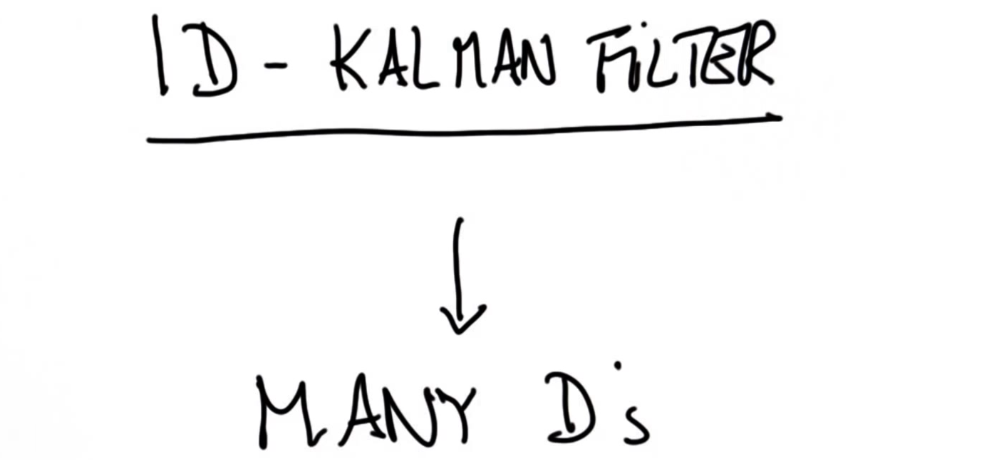 1D - KALMAN FiLTER
MANY D's